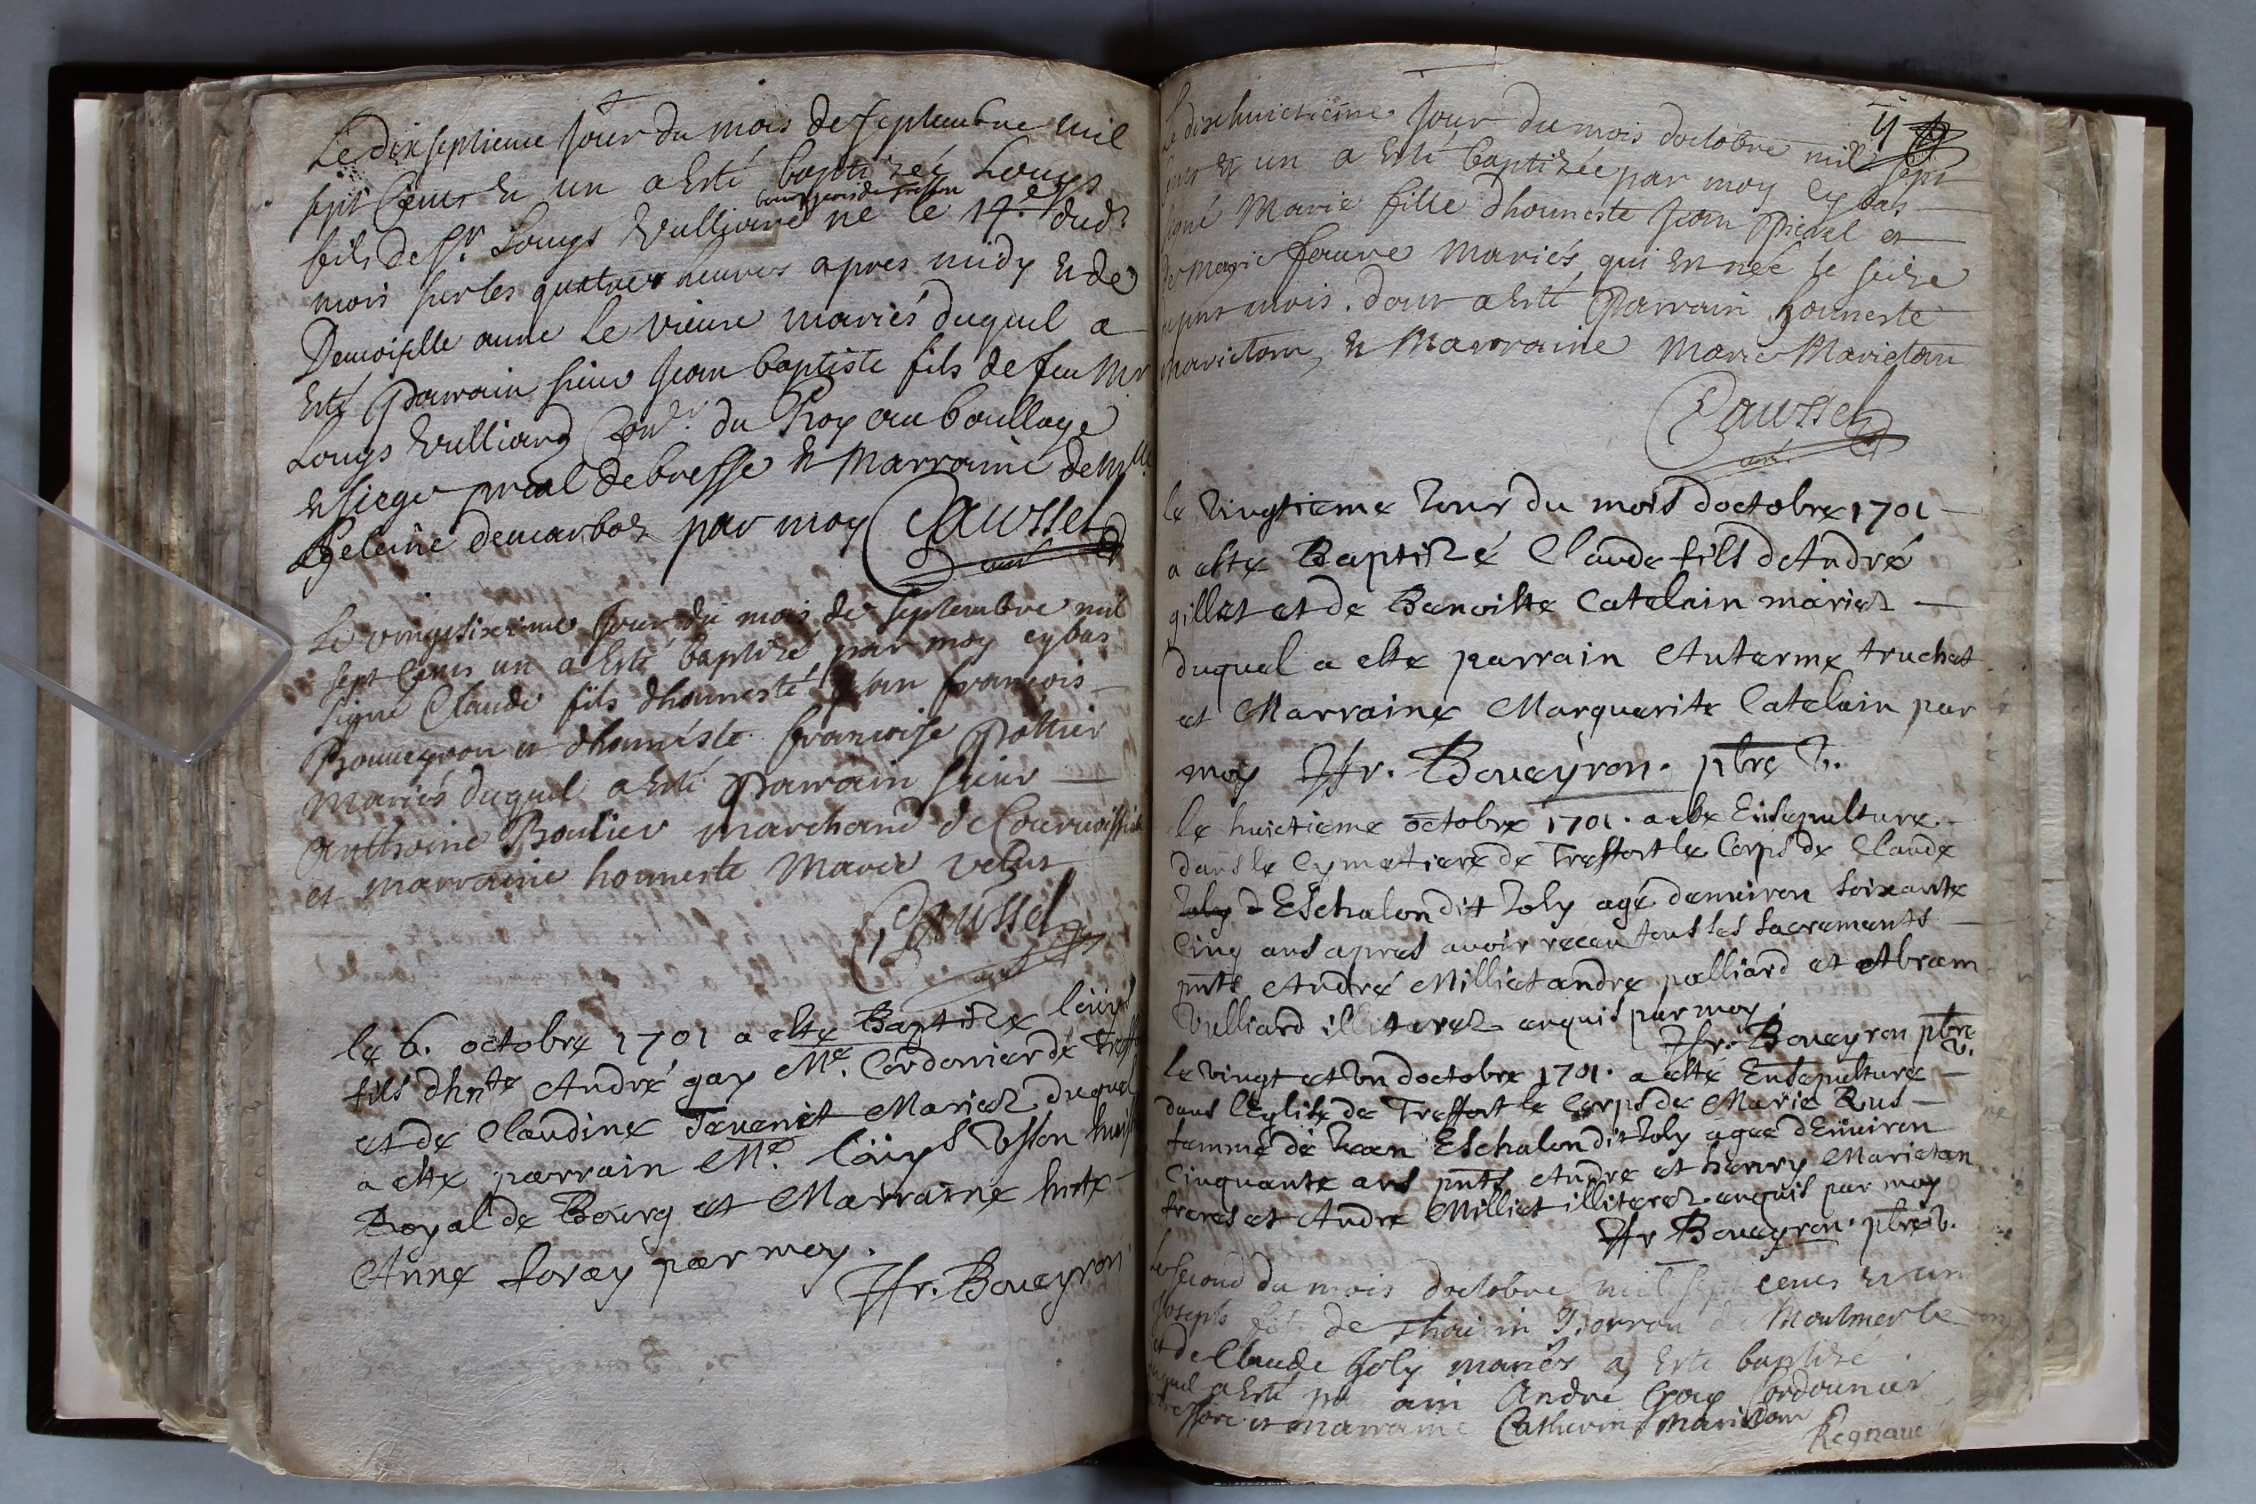 Le dix septieme Jour du mois de septembre mil
sept Cens et un a Esté baptizée Louys
bourgeois de treffort
fils de Sr. Louys Vulliard né le 14e dudt
mois sur les quattre heures apres midy et de
Demoiselle anne Le vieux mariés duquel a
Esté Parrain sieur Jean baptiste fils de feu Mr
Louys Vulliard du Roy au baillage
et siege pnal de bresse et Marraine demlle
heleine demarbos par moy Gaussel
curé
Le vingtsixieme Jour du mois de septembre mil
sept Cens un a Esté baptizé par moy cy bas
signé Claude fils dhonneste Jean francois
Boueyron et dhonneste francoise Pottier
Mariés duquel a Esté Parrain sieur
Anthoine Boulier marchand de
et marraine honneste Marie velut
Gaussel
curé
le 6. octobre 1701 a este Baptize louys
fils dhnte André gay Me. Cordonier de Treffo
et de Claudine Tevenet Mariez duquel
a este parrain Me. loüys
Royal de Bourg et Marraine hnte
Anne foray par moy.
Jfr. Boueyron
Le dixhuictieme Jour du mois doctobre mil sept
cens et un a Esté baptizée par moy cy bas
signé Marie fille dhonneste Jean et
de Marie faure Mariés qui est née le seize
mois. dont a Esté Parrain honneste
Marietton, et Marraine Marie Marietan
Gaussel
curé
le vingtieme Jour du mois doctobre 1701
a este Baptizé Claude fils dAndré
gillet et de Benoiste Catelain mariez
duquel a este parrain Anterme truchet
et Marraine Marguerite Catelain par
moy Jfr. Boueyron. pbre v.
le huictieme octobre 1701. a este Ensepulture
dans le Cymetiere de Treffort le Corps de Claude
Joly d Eschalon dit Joly agé denviron soixante
cinq ans apres avoir receu tous les sacrements
pnts André Milliet andre palliard et Abram
Vulliard illiterez enquis par moy.
Jfr. Boueyron pbre
v.
le vingt et un doctobre 1701. a esté Ensepulture
dans lEglise de Treffort le Corps de Marie Rus
femme de Jean Eschalon dit Joly agee dEnviron
cinquante ans pnts Andre et henry Marietan
freres et Andre Milliet illiterez enquis par moy
Jfr Boueyron. pbre v.
Le second du mois doctobre mil sept cens et un
Joseph fils de de Montmerle
et de Claude Joly mariés a Esté baptizé
duquel a Esté parrain André Gay Cordonnier
et marraine Catherine Marietan
Regnaud